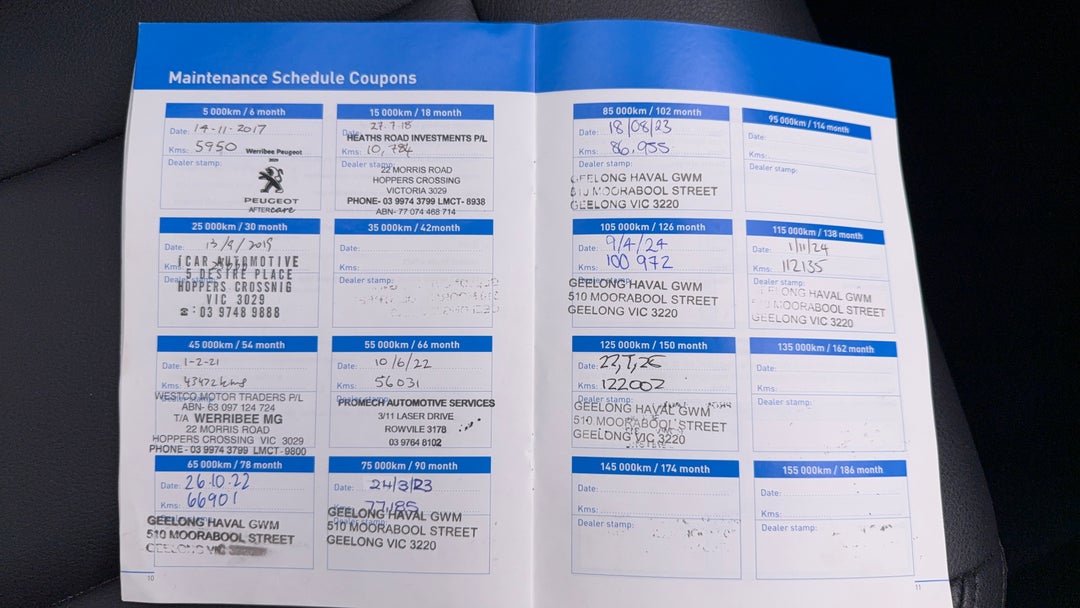 Maintenance Schedule Coupons
5 000km / 6 month
Date: 14-11-2017
Kms: 5950
Werribee Peugeot
Dealer stamp:
PEUGEOT
AFTERcare
15 000km / 18 month
Date: 27.7.18
HEATHS ROAD INVESTMENTS P/L
Kms: 10,784
Dealer stamp:
22 MORRIS ROAD
HOPPERS CROSSING
VICTORIA 3029
PHONE- 03 9974 3799 LMCT- 8938
ABN- 77 074 468 714
25 000km / 30 month
Date: 13/9/2019
Kms:
iCAR AUTOMOTIVE
5 DESIRE PLACE
HOPPERS CROSSNIG
VIC 3029
☎: 03 9748 9888
35 000km / 42month
Date:
Kms:
Dealer stamp:
45 000km / 54 month
Date: 1-2-21
Kms: 43472kms
WESTCO MOTOR TRADERS P/L
Dealer stamp:
ABN- 63 097 124 724
T/A WERRIBEE MG
22 MORRIS ROAD
HOPPERS CROSSING VIC 3029
PHONE - 03 9974 3799 LMCT -9800
55 000km / 66 month
Date: 10/6/22
Kms: 56031
Dealer stamp:
PROMECH AUTOMOTIVE SERVICES
3/11 LASER DRIVE
ROWVILE 3178
03 9764 8102
65 000km / 78 month
Date: 26.10.22
Kms: 66901
GEELONG HAVAL GWM
510 MOORABOOL STREET
GEELONG VIC
75 000km / 90 month
Date: 24/3/23
Kms: 77,185
GEELONG HAVAL GWM
Dealer stamp:
510 MOORABOOL STREET
GEELONG VIC 3220
10
85 000km / 102 month
Date: 18/08/23
Kms: 86,955
Dealer stamp:
GEELONG HAVAL GWM
510 MOORABOOL STREET
GEELONG VIC 3220
95 000km / 114 month
Date:
Kms:
Dealer stamp:
105 000km / 126 month
Date: 9/4/24
Kms: 100 972
Dealer stamp:
GEELONG HAVAL GWM
510 MOORABOOL STREET
GEELONG VIC 3220
115 000km / 138 month
Date: 1/11/24
Kms: 112135
Dealer stamp:
GEELONG HAVAL GWM
510 MOORABOOL STREET
GEELONG VIC 3220
125 000km / 150 month
Date:
Kms: 122002
Dealer stamp:
GEELONG HAVAL GWM
510 MOORABOOL STREET
GEELONG VIC 3220
135 000km / 162 month
Date:
Kms:
Dealer stamp:
145 000km / 174 month
Date:
Kms:
Dealer stamp:
155 000km / 186 month
Date:
Kms:
Dealer stamp:
11